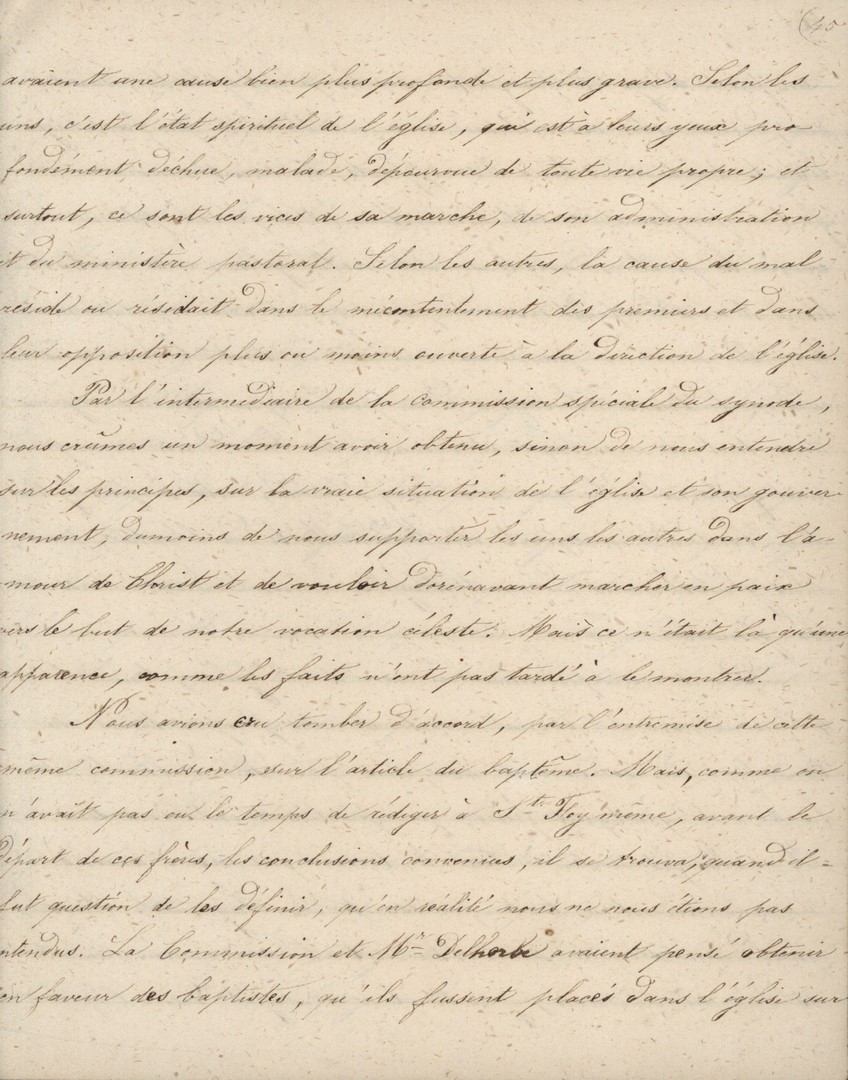 (45
avaient une cause bien plus profonde et plus grave. Selon les
uns, c'est l'état spirituel de l'église, qui est à leurs yeux pro
fondément déchue, malade, dépourvue de toute vie propre; et
surtout, ce sont les vices de sa marche, de son administration
et du ministère pastoral. Selon les autres, la cause du mal
réside ou résidait dans le mécontentement des premiers et dans
leur opposition plus ou moins ouverte à la direction de l'église.
Par l'intermédiaire de la commission spéciale du synode,
nous crûmes un moment avoir obtenu, sinon de nous entendre
sur les principes, sur la vraie situation de l'église et son gouver
nement, dumoins de nous supporter les uns les autres dans l'a-
mour de Christ et de vouloir dorénavant marcher en paix
vers le but de notre vocation céleste. Mais ce n'était là qu'une
apparence, comme les faits n'ont pas tardé à le montrer.
Nous avions cru tomber d'accord, par l'entremise de cette
même commission, sur l'article du baptême. Mais, comme on
n'avait pas eu le temps de rédiger à Ste Foy même, avant le
départ de ces frères, les conclusions convenues, il se trouva, quand il=
fut question de les définir, qu'en réalité nous ne nous étions pas
entendus. La Commission et Mr Delhorbe avaient pensé obtenir
en faveur des baptistes, qu'ils fussent placés dans l'église sur